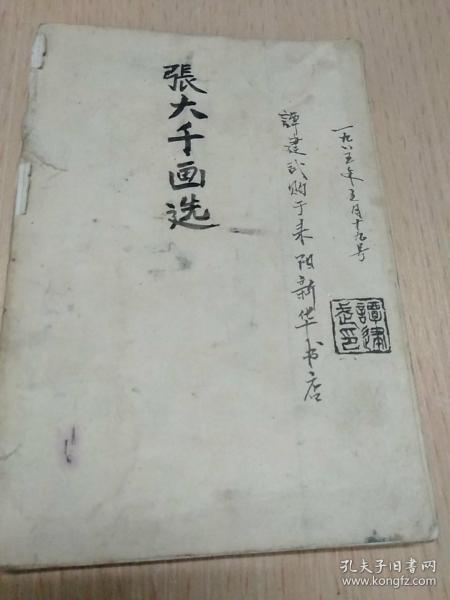 張大千画选
一九八五年五月十九号
譚建武购于耒阳新华书店
譚建
武印
孔夫子旧书网
www.kongfz.com